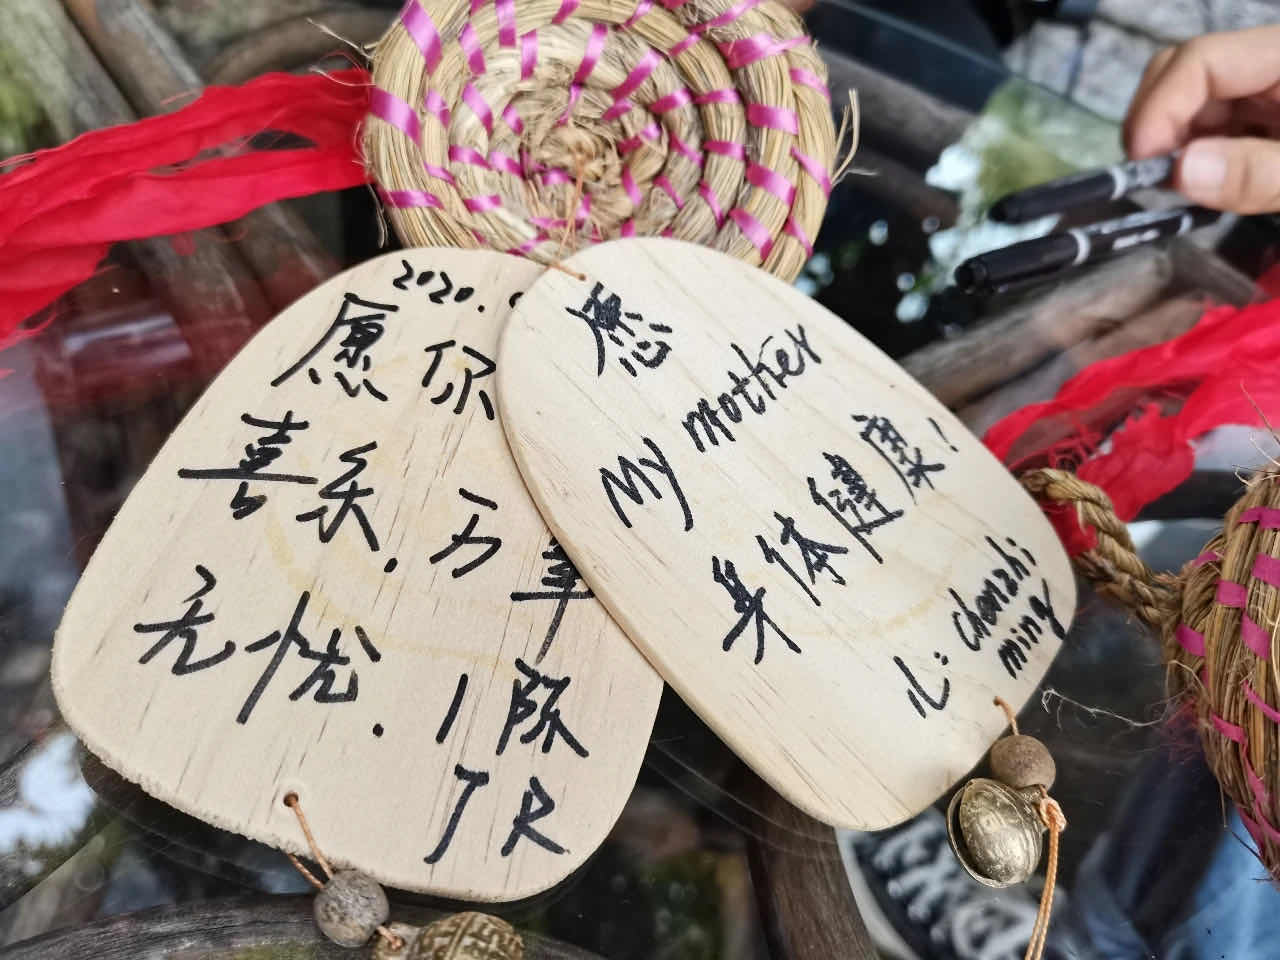 2020.
愿你
喜乐.万事
无忧.
1陈
JR
愿
My mother
身体健康!
儿: chenzhi
ming